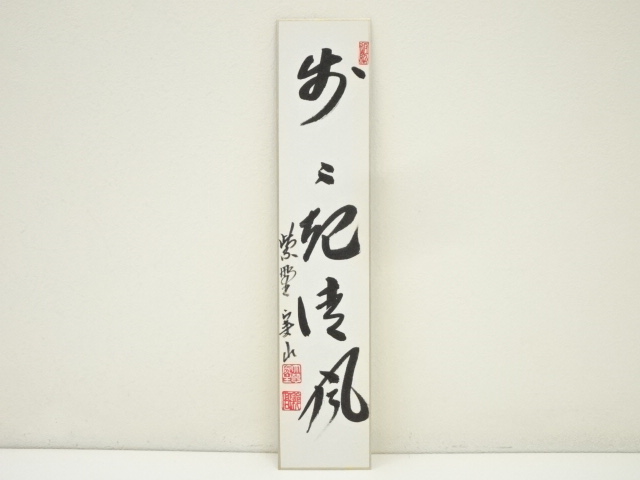 歩々起清風
紫野 寛山